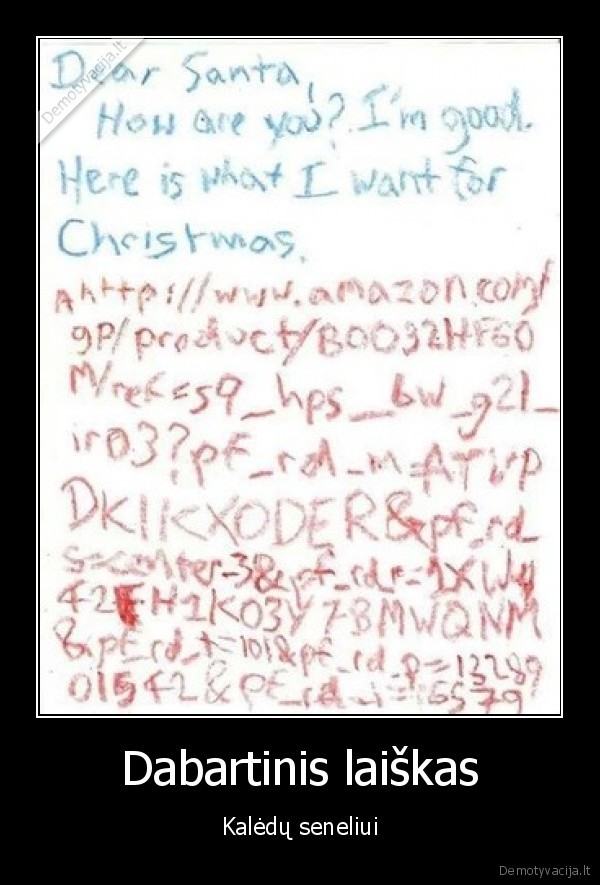 Demotyvacija.lt
Dear Santa,
How are you? I'm good.
Here is what I want for
Christmas.
http://www.amazon.com/
gp/product/B0032HF60
M/ref=s9_hps_bw_g21_
ir03?pf_rd_m=ATVP
DKIKX0DER&pf_rd_
s=center-3&pf_rd_r=1XWY
42FH1K03Y7BMWQNM
&pf_rd_t=101&pf_rd_p=13289
01542&pf_rd_i=16579
Dabartinis laiškas
Kalėdų seneliui
Demotyvacija.lt